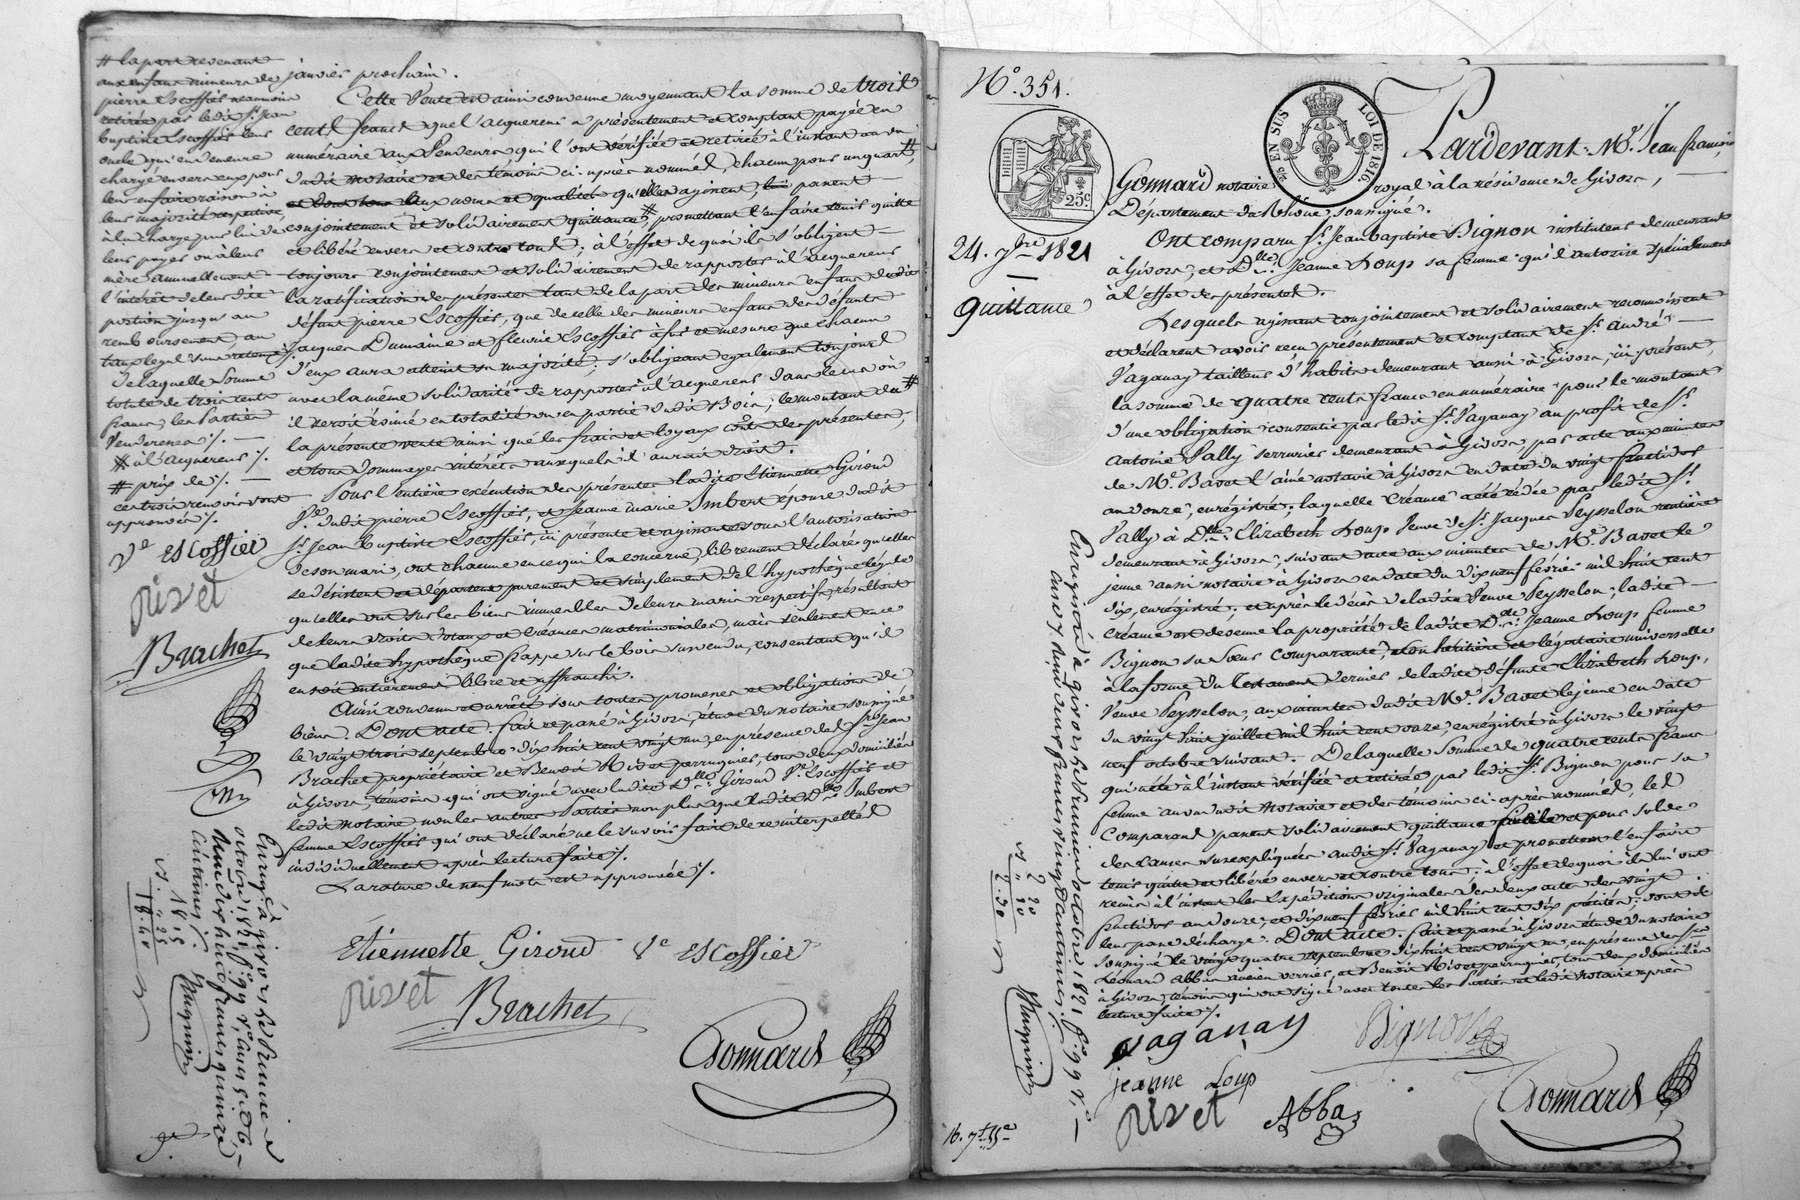 # la part revenant
aux enfans mineurs de
pierre Escoffier neanmoins
retirée par ledit Sr. Jean
baptiste Escoffier leur
oncle qui en demeure
chargé envers eux pour
leur en faire raison à
leur majorité respective,
à la charge par lui de
leur payer ou à leur
mère annuellement
l'intérêt de leur dite
portion jusqu'au
remboursement, au
taux legal sans retenue /.
De laquelle somme
totale de trois cents
francs les parties
venderesses /.
# à l'acquereur /.
# prix de /.
ces trois renvois sont
approuvés /.
Ve Escoffier
Rivet
Brachet
janvier prochain.
Cette vente est ainsi convenue moyennant la somme de trois
cents francs que l'acquereur a présentement et comptant payée en
numéraire aux vendeurs qui l'ont vérifiée et retirée à l'instant au vu
dudit notaire et des témoins ci-après nommés, chacun pour un quart, #
aux noms et qualités qu'elles agissent, passent
conjointement et solidairement quittance # promettant l'en faire tenir quitte
et libéré envers et contre tous; à l'effet de quoi ils s'obligent
toujours conjointement et solidairement de rapporter à l'acquereur
la ratification des présentes tant de la part des mineurs enfans dudit
défunt pierre Escoffier, que de celle des mineurs enfans des défunts
Jacques Dumaine et fleurie Escoffier à fur et mesure que chacun
d'eux aura atteint sa majorité; s'obligeant egalement toujours
avec la même solidarité de rapporter à l'acquereur dans le cas où
il seroit évincé en totalité ou en partie dudit Bois, le montant du #
la présente vente ainsi que les frais et loyaux coûts des présentes,
et tous dommages intérêts auxquels il auroit droit.
Pour l'entière exécution des présentes ladite Etiennette Giroud
Ve dudit pierre Escoffier, et Jeanne marie Imbert épouse dudit
Sr. Jean baptiste Escoffier, ici présente et agissant sous l'autorisation
de son mari, ont chacune en ce qui la concerne, librement déclaré qu'elles
se désistent et départent purement et simplement de l'hypothèque légale
qu'elles ont sur les biens immeubles de leurs maris respectifs, résultant
de leurs droits dotaux et créances matrimoniales, mais seulement en ce
que ladite hypothèque frappe sur le bois sus vendu, consentant qu'il
en soit entièrement libre et affranchi.
Ainsi convenu et arrêté sous toutes promesses et obligations de
biens. Dont acte. fait et passé à Givors, étude du notaire soussigné
le vingt trois septembre dix huit cent vingt un, en présence des Srs. Jean
Brachet propriétaire et Benoit Rivet perruquier, tous deux domiciliés
à Givors, témoins qui ont signé avec ladite Dlle Giroud Ve Escoffier et
ledit notaire non les autres parties non plus que ladite De Imbert
femme Escoffier qui ont déclaré ne le savoir faire de ce interpellés
individuellement après lecture faite /.
La rature de neuf mots est approuvée /.
Etiennette Giroud Ve Escoffier
Rivet
Brachet
Gonnard
Enregé à givors le Premier
octobre 1821 fo. 99 Vo. cases 5 & 6
Reçu dix huit francs quinze
centimes /. Mugnier
18 15
25
18 40
No. 351.
25 c
25 C EN SUS
LOI DE 1816
24. 7bre 1821
Quittance
Pardevant Me. Jean françois
Gonnard notaire royal à la résidence de Givors,
Département du Rhône, soussigné.
Ont comparu Sr. Jean baptiste Bignon instituteur demeurant
à Givors, et Dlle. Jeanne Loup sa femme qu'il autorise spécialement
à l'effet des présentes.
Lesquels agissant conjointement et solidairement reconnoissent
et déclarent avoir reçu présentement et comptant de Sr. André
Vaganay tailleur d'habits demeurant aussi à Givors, ici présent,
la somme de quatre cents francs en numéraire pour le montant
d'une obligation consentie par ledit Sr. Vaganay au profit de Sr.
Antoine Vally serrurier demeurant à Givors par acte aux minutes
de Me. Bavet l'aîné notaire à Givors en date du vingt fructidor
an douze, enregistré; laquelle créance a été cédée par ledit Sr.
Vally à Dlle. Elizabeth Loup Veuve de Sr. Jacques Peysselon rentière
demeurant à Givors, suivant acte aux minutes de Me. Bavet le
jeune aussi notaire à Givors en date du dix neuf février mil huit cent
dix, enregistré; et après le décès de ladite Veuve Peysselon, ladite
Créance est devenue la propriété de ladite De. Jeanne Loup femme
Bignon sa sœur comparante, et son héritière et légataire universelle
à la forme du testament dernier de ladite défunte Elizabeth Loup,
Veuve Peysselon, aux minutes dudit Me. Bavet le jeune en date
du vingt huit juillet mil huit cent onze, enregistré à Givors le vingt
neuf octobre suivant. De laquelle somme de quatre cents francs
qui a été à l'instant vérifiée et retirée par ledit Sr. Bignon pour sa
femme au vu dudit notaire et des témoins ci-après nommés, les
Comparans passent solidairement quittance finale et pour solde
des causes sus expliquées audit Sr. Vaganay et promettent l'en faire
tenir quitte et libéré envers et contre tous; à l'effet de quoi ils lui ont
remis à l'instant les expéditions originales des deux actes des vingt
fructidor an douze, et dix neuf février mil huit cent dix précités; dont il
leur passe décharge. Dont acte. fait et passé à Givors étude du notaire
soussigné le vingt quatre septembre dix huit cent vingt un, en présence des Srs.
Léonard Abba ancien verrier, et Benoit Rivet perruquier, tous deux domiciliés
à Givors, témoins qui ont signé avec toutes les parties et ledit notaire après
lecture faite /.
vaganay
Bignon
jeanne Loup
Rivet
Abba
Gonnard
Enregistré à givors le Premier octobre 1821 fo. 99 Vo.
case 7. Reçu deux francs vingt centimes /.
Mugnier
2 20